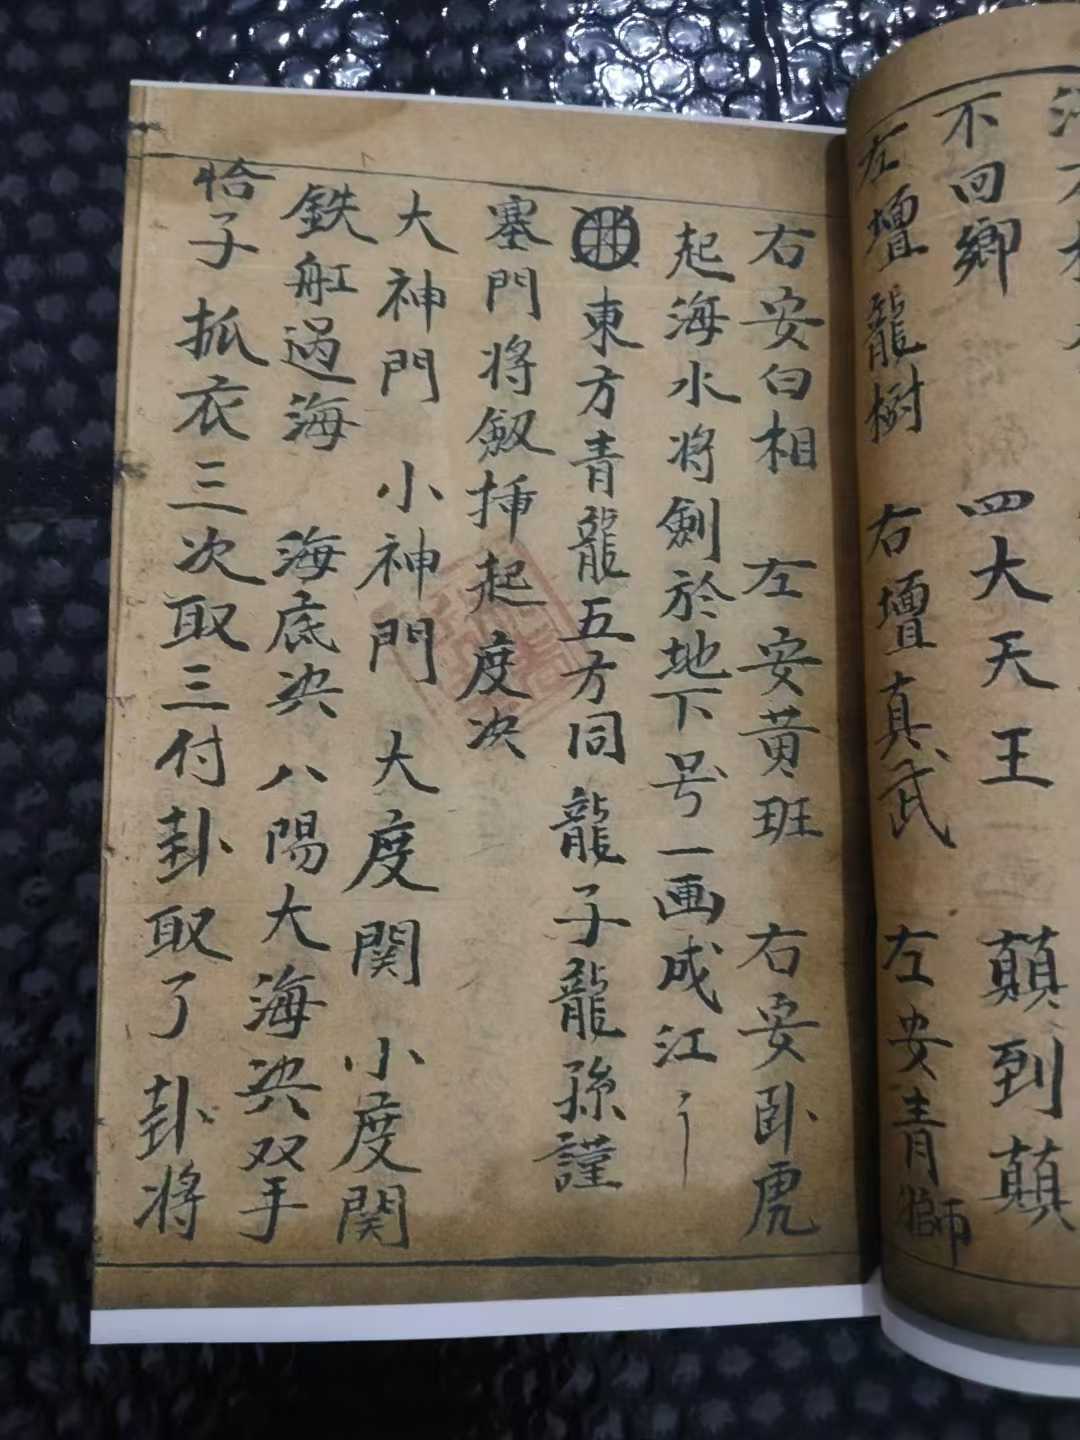 不回鄉 四大天王 顛到顛
左壇龍樹 右壇真武 左安青獅
右安白相 左安黄班 右安臥虎
起海水将劍於地下号一画成江
東方青龍五方同 龍子龍孫謹
塞門将劔挿起 度决
大神門 小神門 大度関 小度関
鉄舡過海 海底决 八陽大海决双手
恰子抓衣三次取三付卦取了卦将